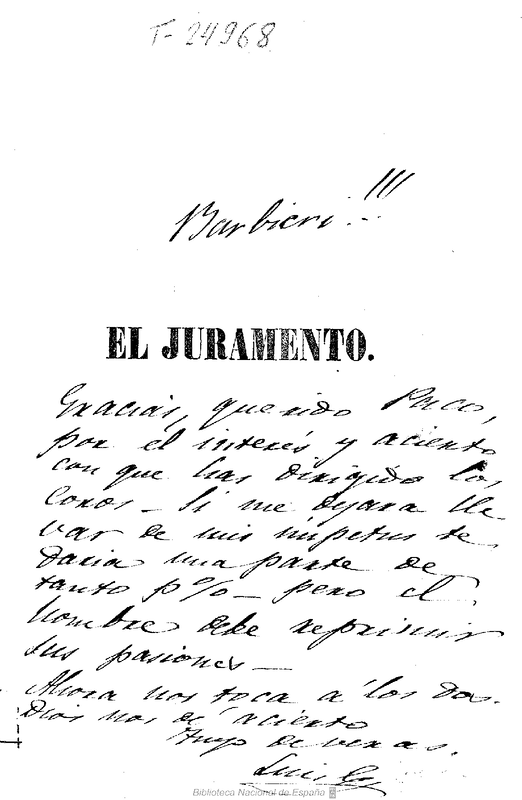 T-24968
Barbieri!!!
EL JURAMENTO.
Gracias, querido Paco,
por el interés y acierto
con que has dirigido los
Coros - Si me dejara lle
var de mis ímpetus te
daria una parte de
tanto p% - pero el
hombre debe reprimir
sus pasiones -
Ahora nos toca a los dos.
Dios nos dé acierto
Tuyo de veras.
Luis
Biblioteca Nacional de España